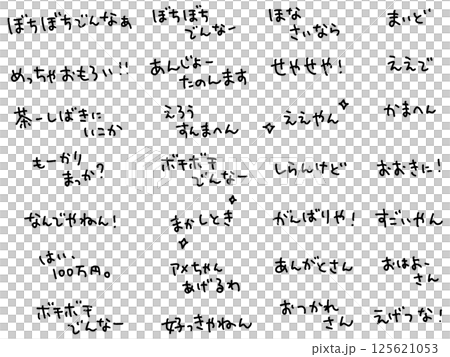 ぼちぼちでんなぁ
ぼちぼち
でんなー
ほな
さいなら
まいど
めっちゃおもろい!!
あんじょー
たのんます
せやせや!
ええで
茶ーしばきに
いこか
えろう
すんまへん
ええやん
かまへん
もーかり
まっか?
ボチボチ
でんなー
しらんけど
おおきに!
なんでやねん!
まかしとき
がんばりや!
すごいやん
はい、
100万円。
アメちゃん
あげるわ
あんがとさん
おはよー
さん
ボチボチ
でんなー
好っきゃねん
おつかれ
さん
えげつな!
PIXTA
125621053